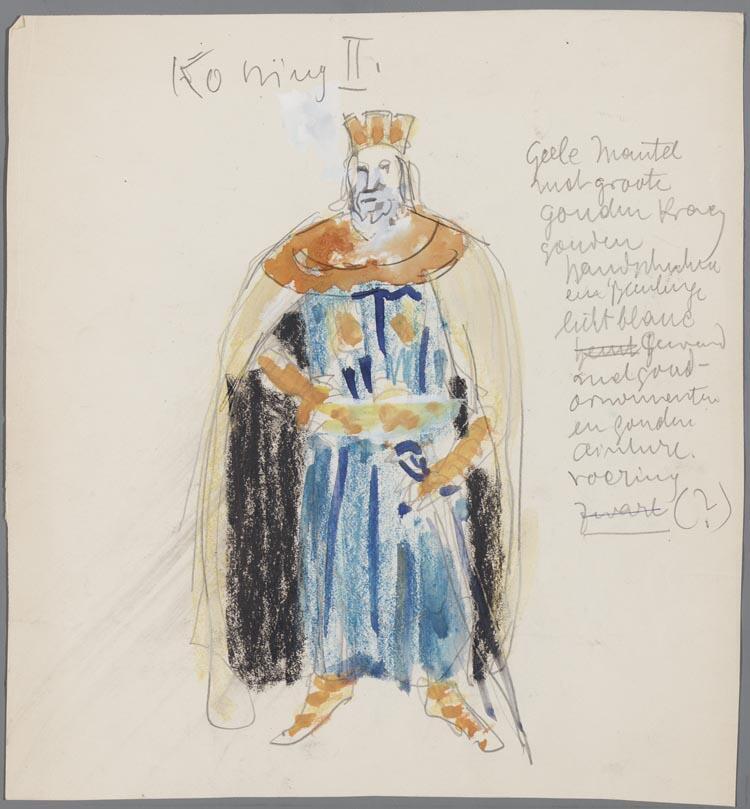 Koning II.
Geele Mantel
met groote
gouden Kraag
gouden
handschoenen
licht blauw
gewaad
met goud-
ornamenten
en gouden
ceinture.
voering
zwart (?)